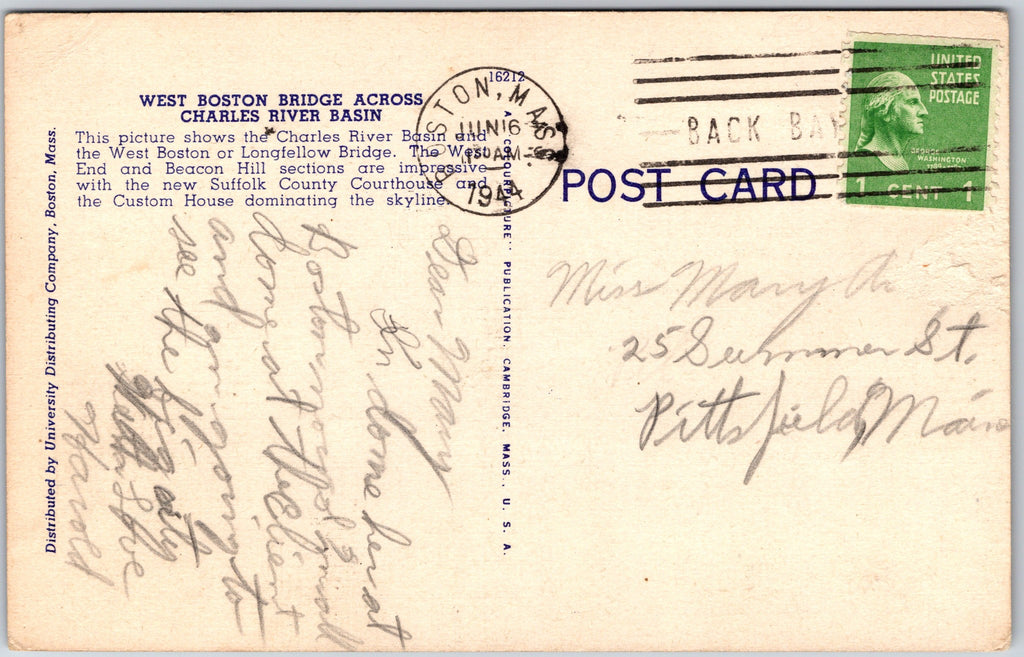 16212
WEST BOSTON BRIDGE ACROSS
CHARLES RIVER BASIN
This picture shows the Charles River Basin and
the West Boston or Longfellow Bridge. The West
End and Beacon Hill sections are impressive
with the new Suffolk County Courthouse and
the Custom House dominating the skyline.
Distributed by University Distributing Company, Boston, Mass.
A "COLOURPICTURE" PUBLICATION, CAMBRIDGE, MASS., U. S. A.
BOSTON, MASS.
JUN 16
11 30 AM
1944
BACK BAY
UNITED
STATES
POSTAGE
GEORGE
WASHINGTON
1789-1797
1 CENT 1
POST CARD
Miss Mary
25 Summer St.
Pittsfield, Maine
Dear Mary
I'm down here at
Boston
and am going to
see the
city
With Love
Harold